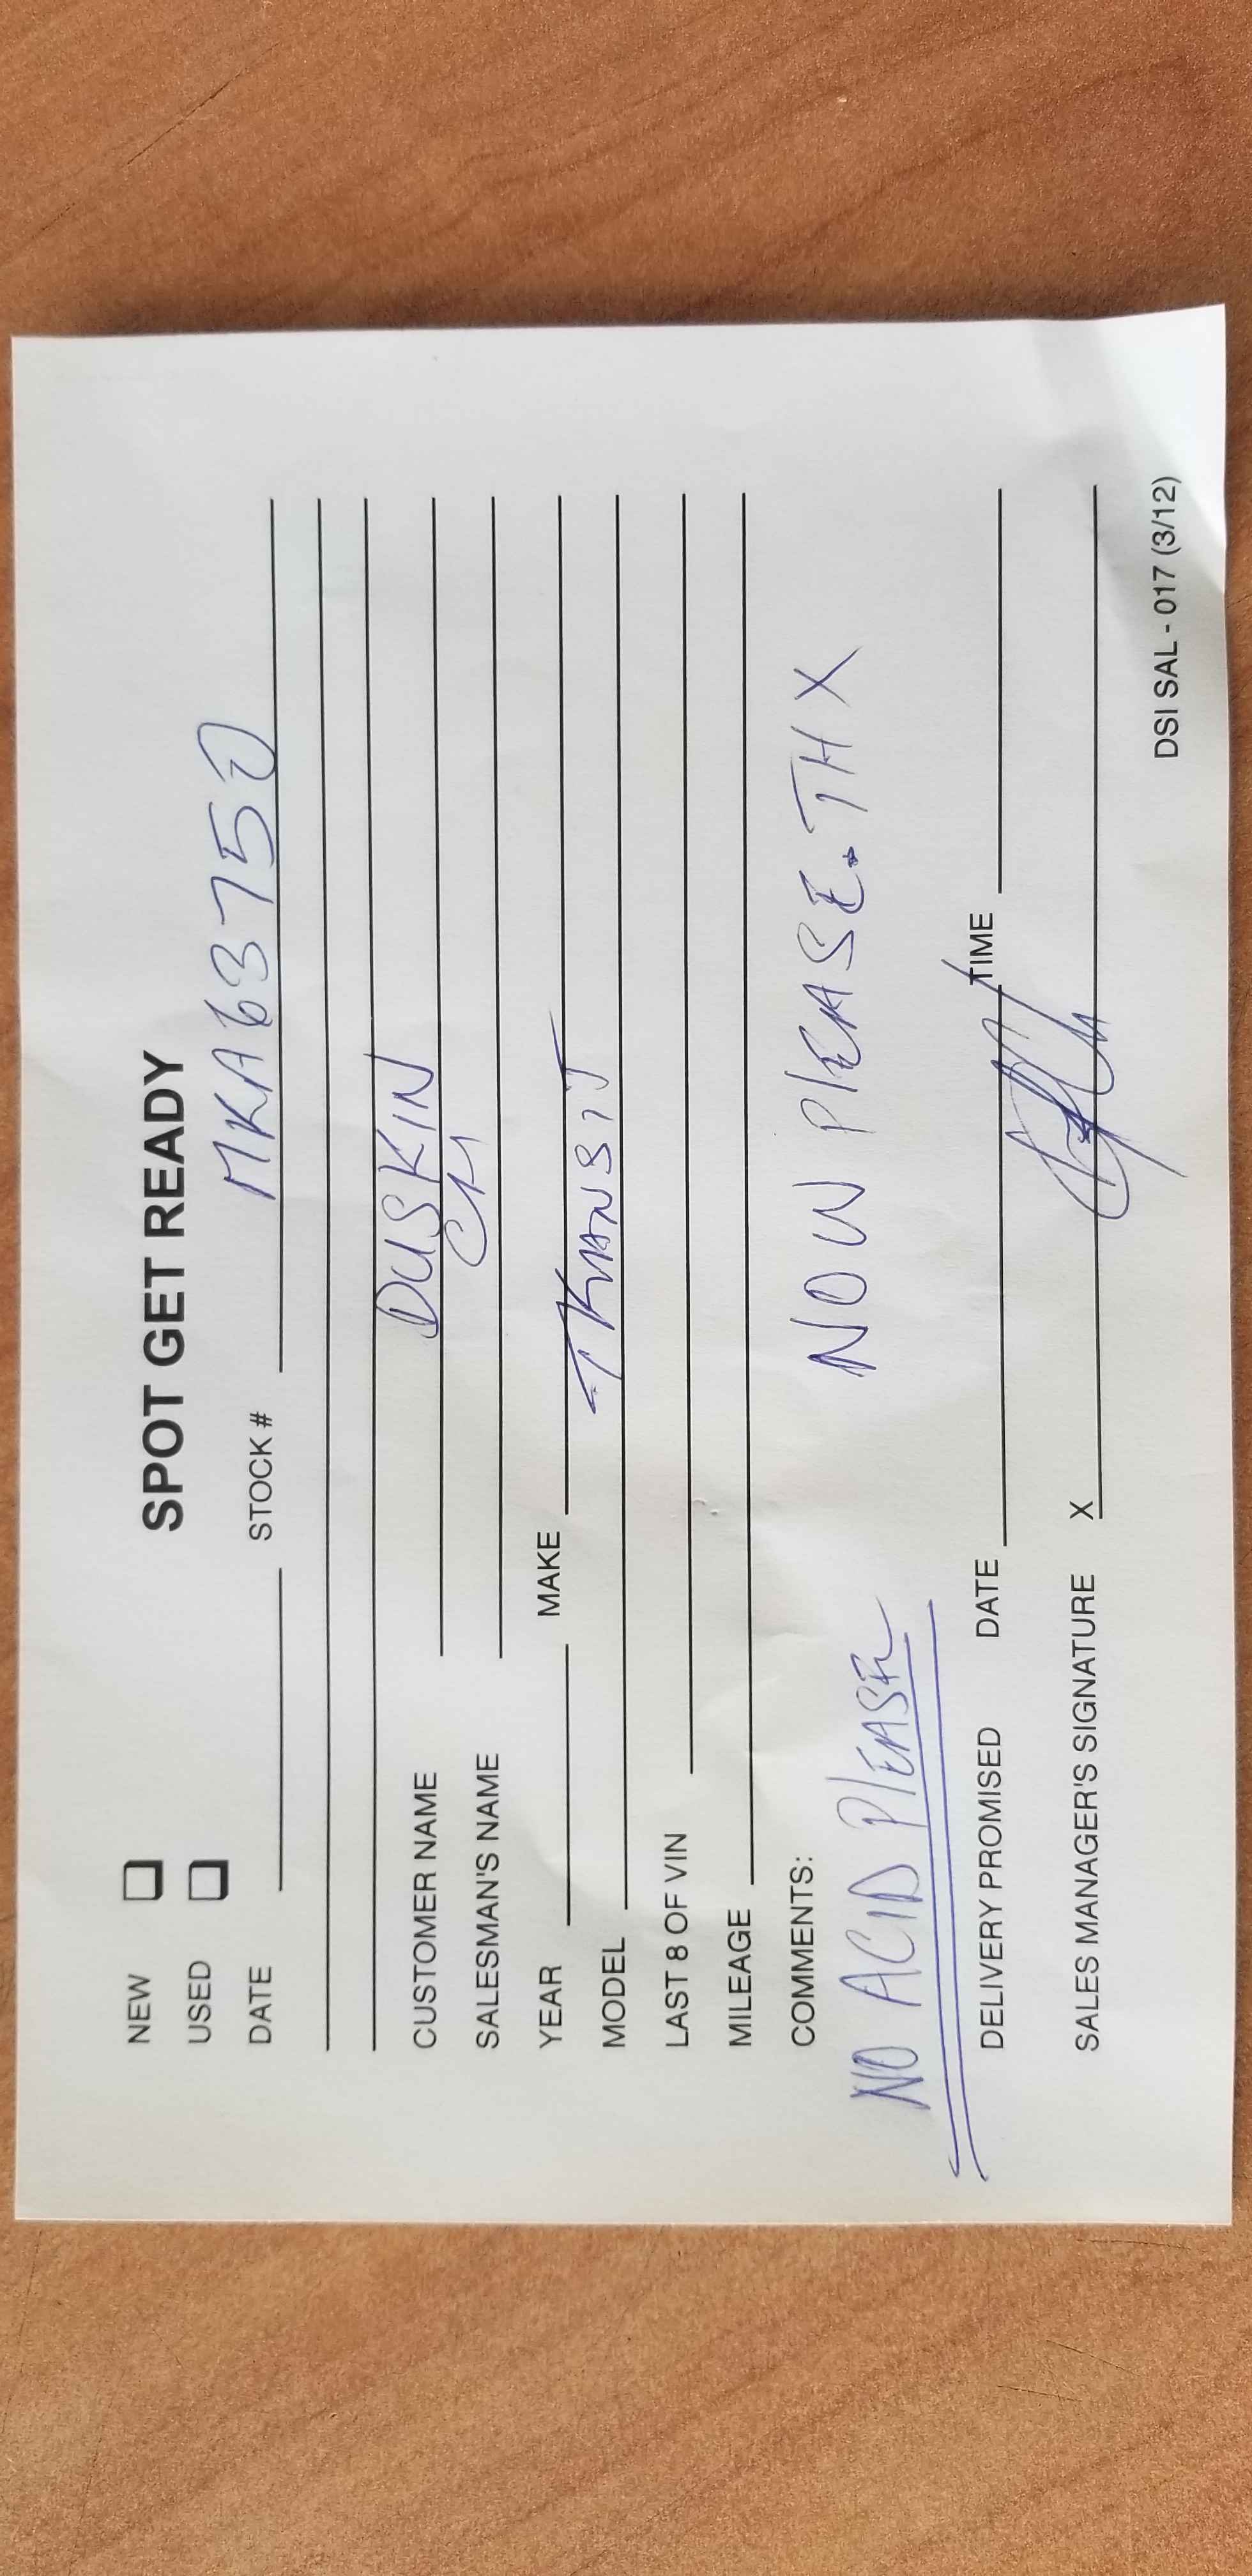 SPOT GET READY
NEW
USED
DATE STOCK # MKA63750
CUSTOMER NAME DUSKIN
SALESMAN'S NAME CM
YEAR MAKE
MODEL TRANSIT
LAST 8 OF VIN
MILEAGE
COMMENTS: NOW PLEASE. THX
NO ACID PLEASE
DELIVERY PROMISED DATE TIME
SALES MANAGER'S SIGNATURE X
DSI SAL - 017 (3/12)